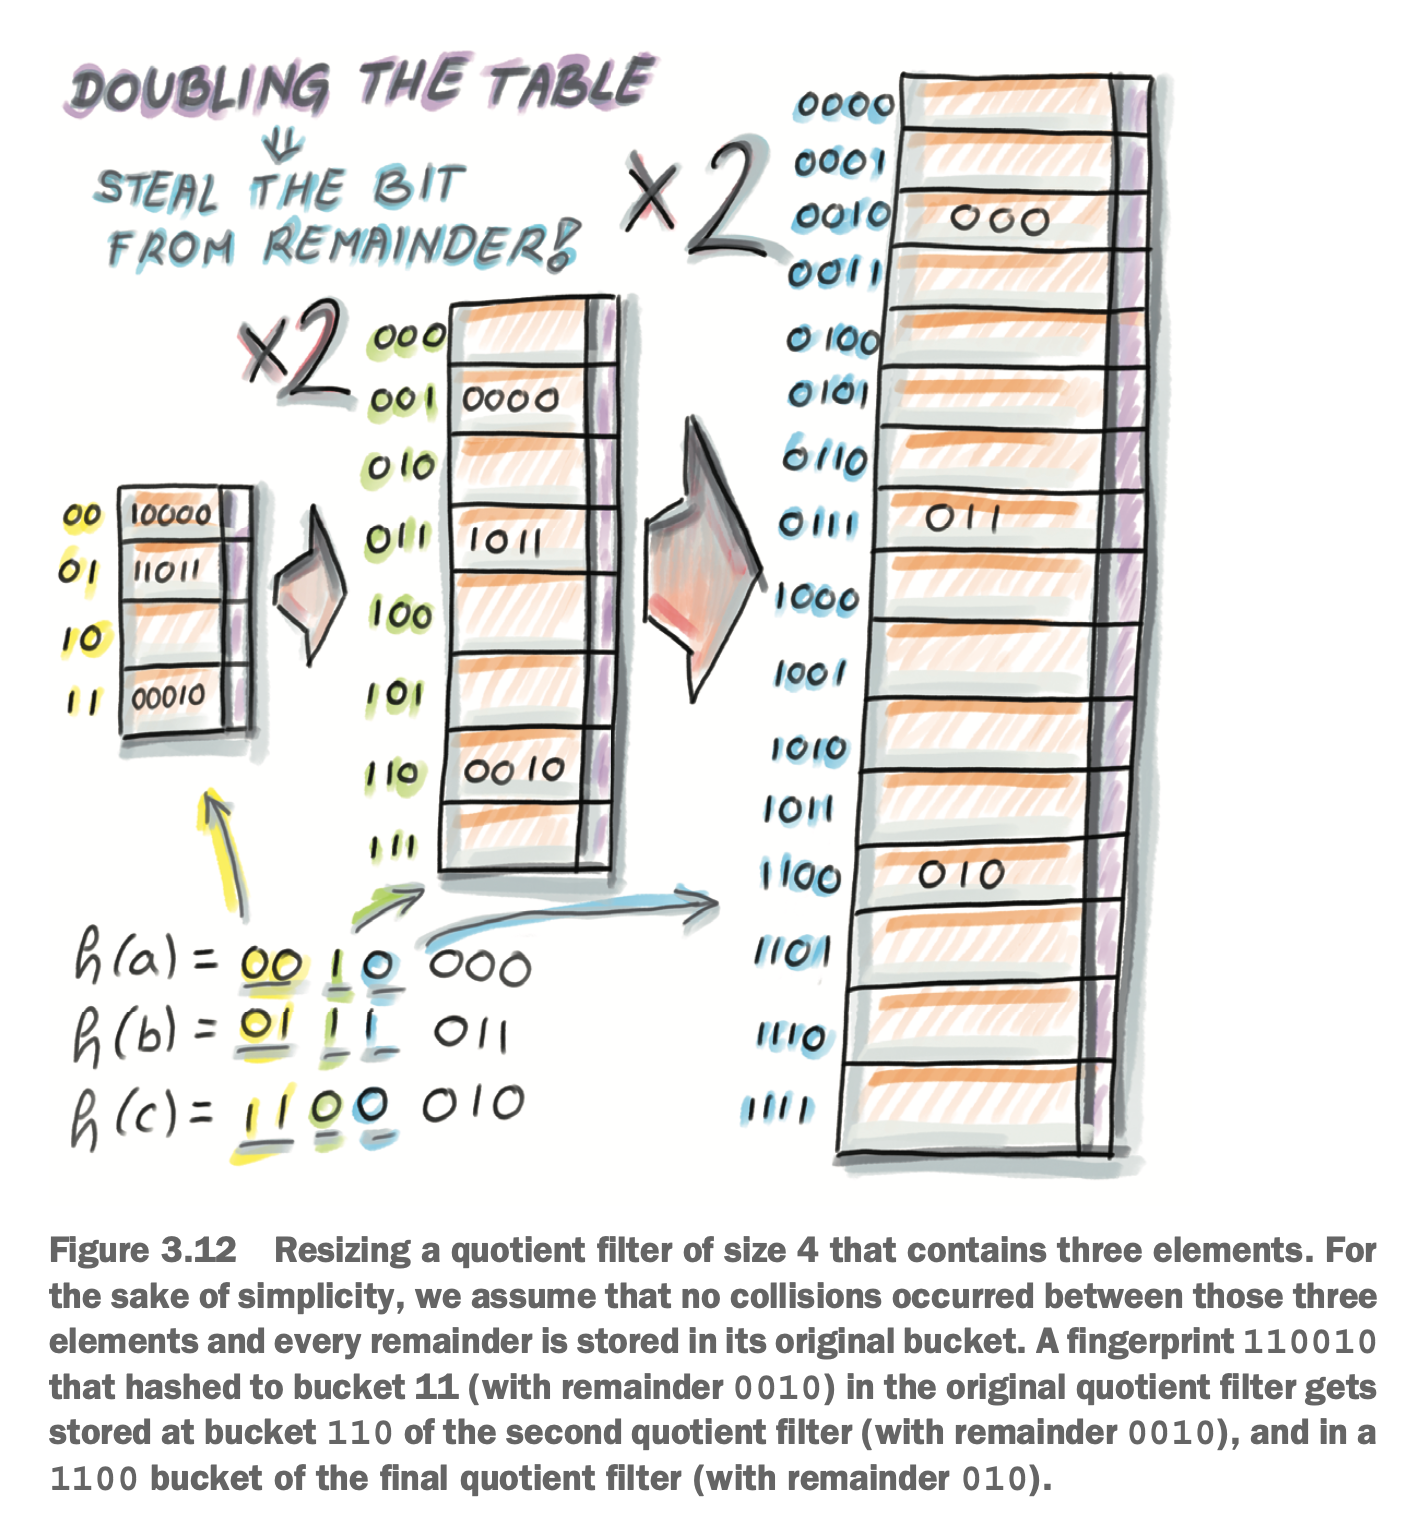 DOUBLING THE TABLE
STEAL THE BIT
FROM REMAINDER!
×2
00 10000
01 11011
10
11 00010
×2
000
001 0000
010
011 1011
100
101
110 0010
111
0000
0001
0010 000
0011
0100
0101
0110
0111 011
1000
1001
1010
1011
1100 010
1101
1110
1111
h(a) = 00 1 0 000
h(b) = 01 1 1 011
h(c) = 11 0 0 010
Figure 3.12 Resizing a quotient filter of size 4 that contains three elements. For
the sake of simplicity, we assume that no collisions occurred between those three
elements and every remainder is stored in its original bucket. A fingerprint 110010
that hashed to bucket 11 (with remainder 0010) in the original quotient filter gets
stored at bucket 110 of the second quotient filter (with remainder 0010), and in a
1100 bucket of the final quotient filter (with remainder 010).